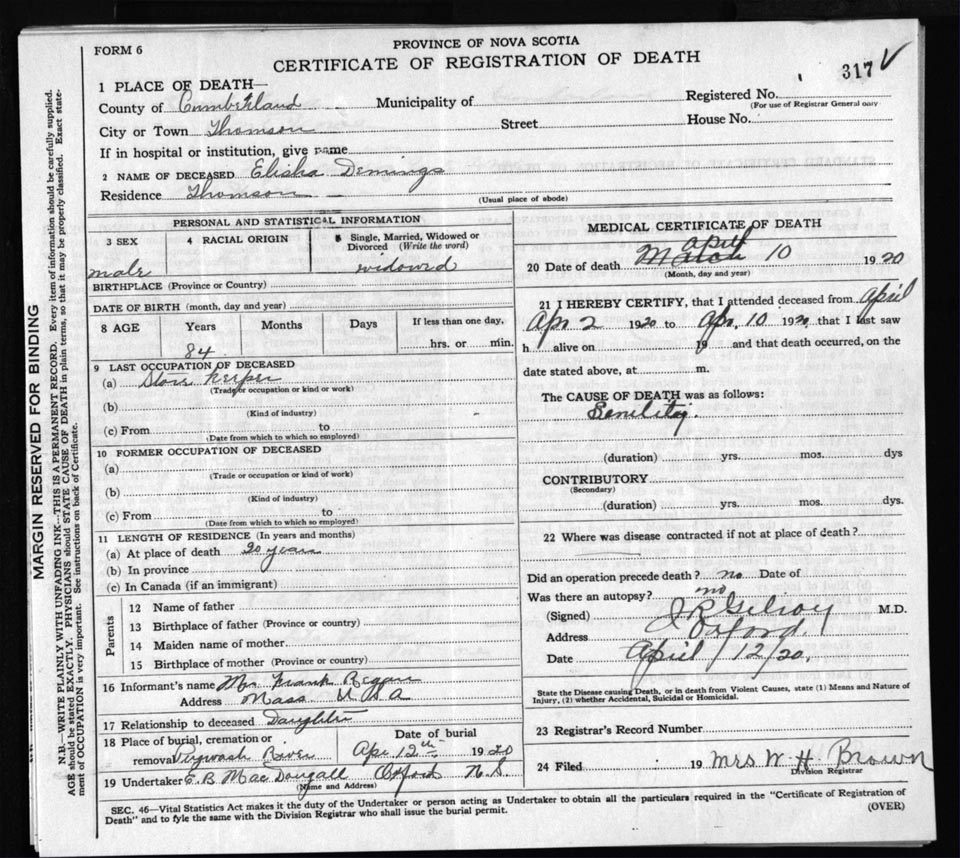 FORM 6
PROVINCE OF NOVA SCOTIA
CERTIFICATE OF REGISTRATION OF DEATH
317 V
1 PLACE OF DEATH—
County of Cumberland Municipality of Registered No.
(For use of Registrar General only
City or Town Thomson Street House No.
If in hospital or institution, give name
2 NAME OF DECEASED Elisha Demings
Residence Thomson
(Usual place of abode)
PERSONAL AND STATISTICAL INFORMATION
3 SEX 4 RACIAL ORIGIN 5 Single, Married, Widowed or Divorced (Write the word)
male widowd
BIRTHPLACE (Province or Country)
DATE OF BIRTH (month, day and year)
8 AGE Years Months Days If less than one day,
84 hrs. or min.
9 LAST OCCUPATION OF DECEASED
(a) Store Keeper
(Trade or occupation or kind or work)
(b)
(Kind of industry)
(c) From to
(Date from which to which so employed)
10 FORMER OCCUPATION OF DECEASED
(a)
(Trade or occupation or kind of work)
(b)
(Kind of industry)
(c) From to
(Date from which to which so employed)
11 LENGTH OF RESIDENCE (In years and months)
(a) At place of death 20 years
(b) In province
(c) In Canada (if an immigrant)
Parents
12 Name of father
13 Birthplace of father (Province or country)
14 Maiden name of mother
15 Birthplace of mother (Province or country)
16 Informant's name Mrs Frank Regan
Address Mass U.S.A
17 Relationship to deceased Daughter
18 Place of burial, cremation or Date of burial
removal River Apr. 12th 1920
19 Undertaker E. B. MacDougall Oxford N.S.
(Name and Address)
MEDICAL CERTIFICATE OF DEATH
April
20 Date of death March 10 1920
(Month, day and year)
21 I HEREBY CERTIFY, that I attended deceased from April
Apr 2 1920 to Apr. 10 1920 that I last saw
h alive on 19 and that death occurred, on the
date stated above, at m.
The CAUSE OF DEATH was as follows:
Senility.
(duration) yrs. mos. dys
CONTRIBUTORY
(Secondary)
(duration) yrs. mos. dys.
22 Where was disease contracted if not at place of death?
Did an operation precede death? no Date of
Was there an autopsy? no
(Signed) J R Gilroy M.D.
Address Oxford
Date April 12/20.
State the Disease causing Death, or in death from Violent Causes, state (1) Means and Nature of
Injury, (2) whether Accidental, Suicidal or Homicidal.
23 Registrar's Record Number
24 Filed 19 Mrs W. H. Brown
Division Registrar
SEC. 46—Vital Statistics Act makes it the duty of the Undertaker or person acting as Undertaker to obtain all the particulars required in the "Certificate of Registration of
Death" and to fyle the same with the Division Registrar who shall issue the burial permit.
(OVER)
MARGIN RESERVED FOR BINDING
N.B.—WRITE PLAINLY WITH UNFADING INK—THIS IS A PERMANENT RECORD. Every item of information should be carefully supplied.
AGE should be stated EXACTLY. PHYSICIANS should STATE CAUSE OF DEATH in plain terms, so that it may be properly classified. Exact state-
ment of OCCUPATION is very important. See instructions on back of Certificate.